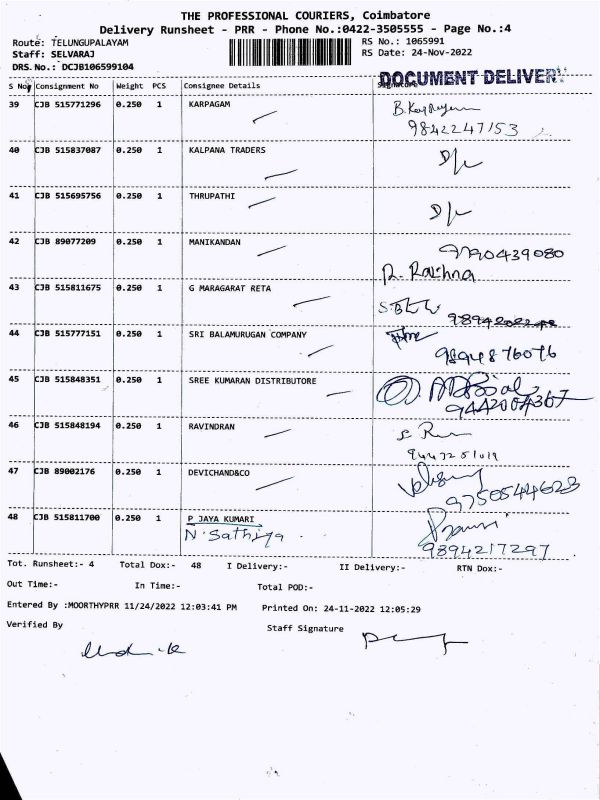 THE PROFESSIONAL COURIERS, Coimbatore
Delivery Runsheet - PRR - Phone No.:0422-3505555 - Page No.:4
Route: TELUNGUPALAYAM RS No.: 1065991
Staff: SELVARAJ RS Date: 24-Nov-2022
DRS.No.: DCJB106599104
DOCUMENT DELIVERY
S No Consignment No Weight PCS Consignee Details Signature
39 CJB 515771296 0.250 1 KARPAGAM
9842247153
40 CJB 515837087 0.250 1 KALPANA TRADERS D/L
41 CJB 515695756 0.250 1 THRUPATHI D/L
42 CJB 89077209 0.250 1 MANIKANDAN 9790439080
R. Rachna
43 CJB 515811675 0.250 1 G MARAGARAT RETA
44 CJB 515777151 0.250 1 SRI BALAMURUGAN COMPANY
9894876076
45 CJB 515848351 0.250 1 SREE KUMARAN DISTRIBUTORE
9442004367
46 CJB 515848194 0.250 1 RAVINDRAN
47 CJB 89002176 0.250 1 DEVICHAND&CO
9750544623
48 CJB 515811700 0.250 1 P JAYA KUMARI
N. Sathiya
9894217297
Tot. Runsheet:- 4 Total Dox:- 48 I Delivery:- II Delivery:- RTN Dox:-
Out Time:- In Time:- Total POD:-
Entered By :MOORTHYPRR 11/24/2022 12:03:41 PM Printed On: 24-11-2022 12:05:29
Verified By Staff Signature